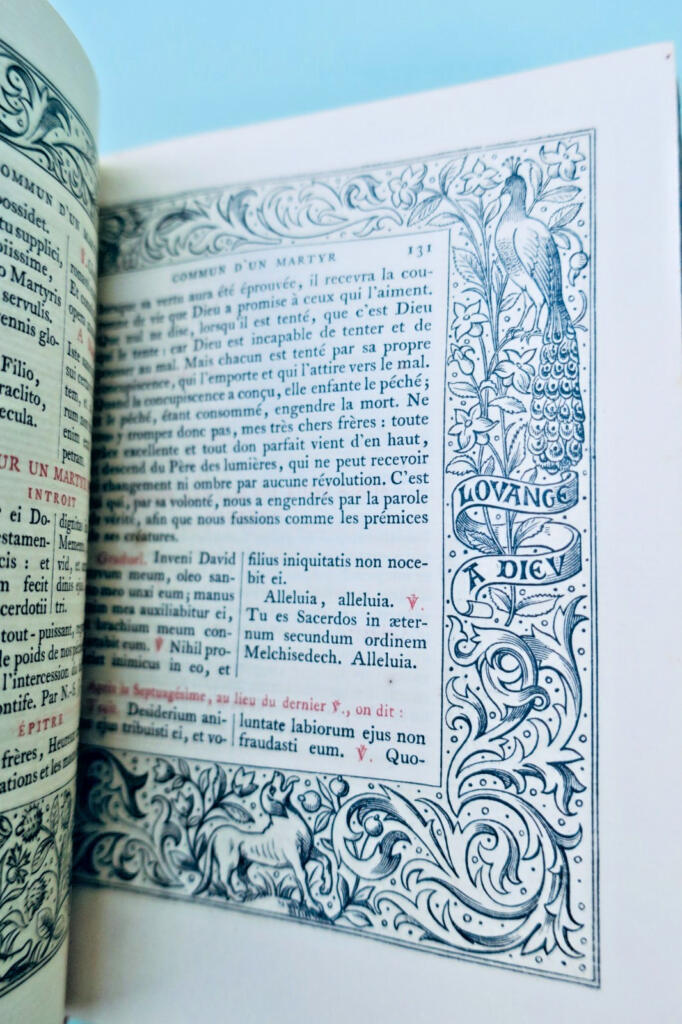 COMMUN D'UN
possidet.
tu supplici,
piissime,
o Martyris
servulis.
ennis glo-
Filio,
raclito,
ecula.
UR UN MARTYR
INTROIT
ei Do-
estamen-
cis : et
m fecit
cerdotii
dignitas
Memento
vid, et
dinis
tri.
tout-puissant,
le poids de nos
l'intercession du
ontife. Par N.-S.
ÉPITRE
frères, Heureux
ations et les
COMMUN D'UN MARTYR 131
sa vertu aura été éprouvée, il recevra la cou-
de vie que Dieu a promise à ceux qui l'aiment.
nul ne dise, lorsqu'il est tenté, que c'est Dieu
le tente : car Dieu est incapable de tenter et de
au mal. Mais chacun est tenté par sa propre
concupiscence, qui l'emporte et qui l'attire vers le mal.
la concupiscence a conçu, elle enfante le péché ;
le péché, étant consommé, engendre la mort. Ne
y trompez donc pas, mes très chers frères : toute
excellente et tout don parfait vient d'en haut,
descend du Père des lumières, qui ne peut recevoir
changement ni ombre par aucune révolution. C'est
qui, par sa volonté, nous a engendrés par la parole
vérité, afin que nous fussions comme les prémices
ses créatures.
Graduel. Inveni David
servum meum, oleo san-
cto meo unxi eum; manus
enim mea auxiliabitur ei,
et brachium meum con-
fortabit eum. ℣ Nihil pro-
ficiet inimicus in eo, et
filius iniquitatis non noce-
bit ei.
Alleluia, alleluia. ℣.
Tu es Sacerdos in æter-
num secundum ordinem
Melchisedech. Alleluia.
Après la Septuagésime, au lieu du dernier ℣., on dit :
Trait. Desiderium ani-
mæ ejus tribuisti ei, et vo-
luntate labiorum ejus non
fraudasti eum. ℣. Quo-
LOVANGE
A DIEV